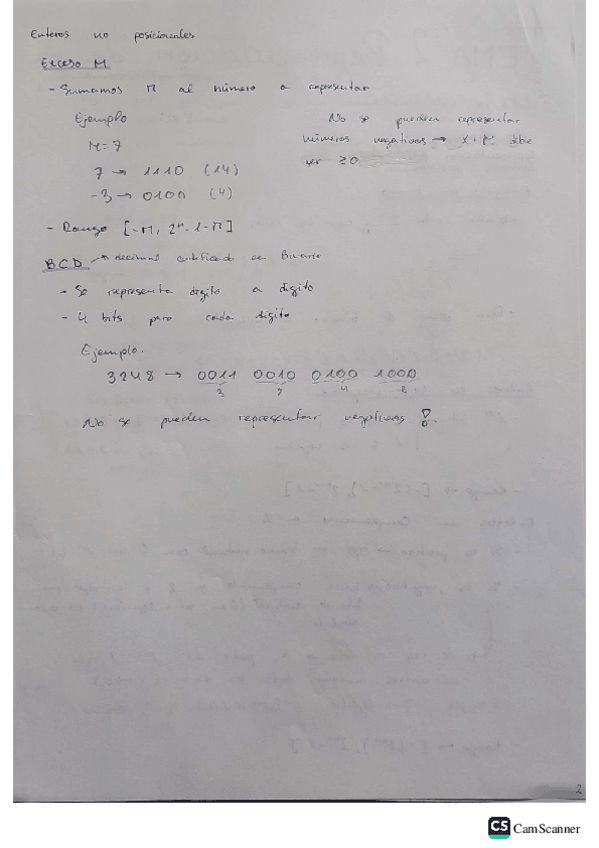 Enteros no posicionales
Exceso M
- Sumamos M al número a representar
Ejemplo
M=7
7 → 1110 (14)
-3 → 0100 (4)
No se pueden representar
números negativos → X+M debe
ser ≥0
- Rango [-M, 2ⁿ-1-M]
BCD → decimal codificado en Binario
- Se representa dígito a dígito
- 4 bits para cada dígito
Ejemplo.
3248 → 0011 0010 0100 1000
3 2 4 8
No se pueden representar negativos !
2
CS CamScanner